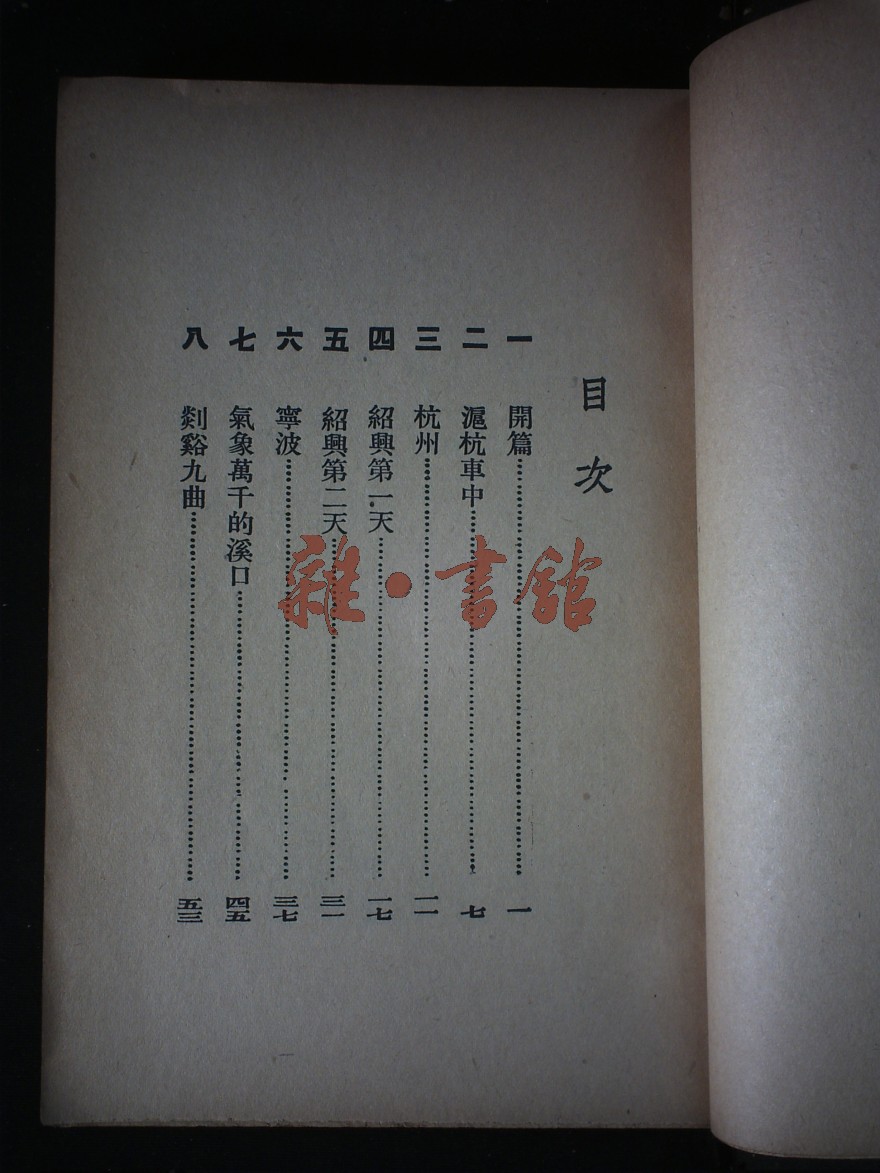 目次
一 開篇 一
二 滬杭車中 七
三 杭州 一一
四 紹興第一天 一七
五 紹興第二天 三一
六 寧波 三七
七 氣象萬千的溪口 四五
八 剡谿九曲 五三
雜·書館